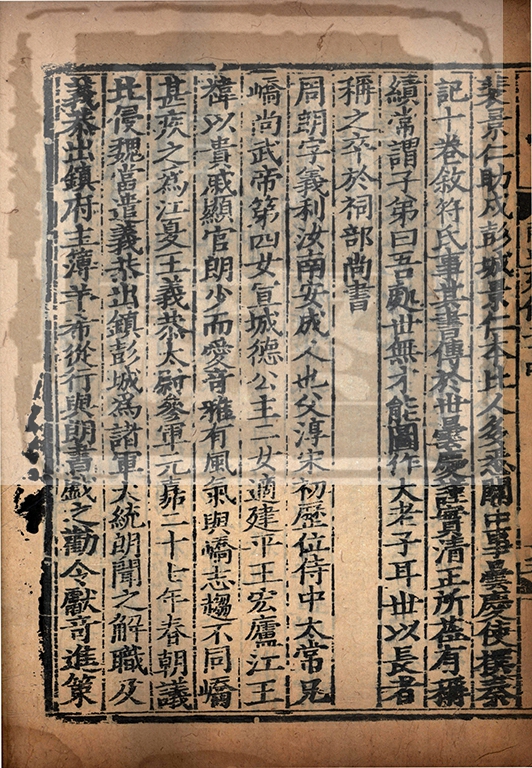 裴景仁助戍彭城景仁本北人多悉關中事曇慶使撰秦
記十卷敘符氏事其書傳於世曇慶謹實清正所莅有稱
績常謂子弟曰吾處世無才能圖作大老子耳世以長者
稱之卒於祠部尚書
周朗字義利汝南安成人也父淳宋初歷位侍中太常兄
嶠尚武帝第四女宣城德公主二女適建平王宏廬江王
禕以貴戚顯官朗少而愛奇雅有風氣與嶠志趣不同嶠
甚疾之爲江夏王義恭太尉參軍元嘉二十七年春朝議
北侵魏當遣義恭出鎮彭城爲諸軍大統朗聞之解職及
義恭出鎮府主簿羊希從行與朗書戲之勸令獻奇進策